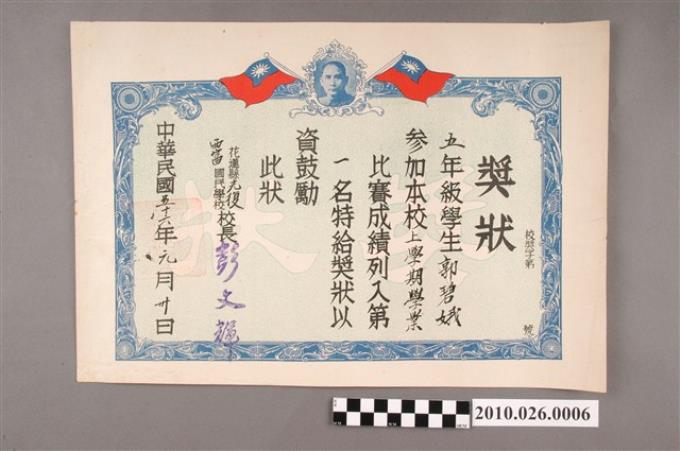 獎狀
校獎字第 號
五年級學生郭碧娥
參加本校上學期學業
比賽成績列入第
一名特給獎狀以
資鼓勵
此狀
花蓮縣光復
西富國民學校校長彭文輝
中華民國五十六年元月卅日
獎狀
2010.026.0006